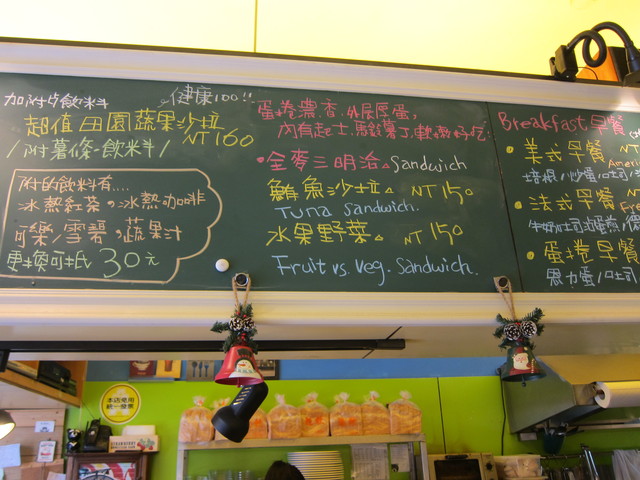 加附
飲料
健康100!!
超值田園蔬果沙拉
NT160
/附薯條+飲料/
附的飲料有....
冰熱紅茶。冰熱咖啡
可樂/雪碧。蔬果汁
更換可抵30元
蛋捲濃、香、外層厚蛋,
內有起士,馬鈴薯丁,軟嫩好吃
•全麥三明治。Sandwich
鮪魚沙拉。NT150
Tuna Sandwich.
水果野菜。NT150
Fruit vs. Veg. Sandwich.
Breakfast 早餐
美式早餐 NT
Ame
培根/炒蛋/吐司
法式早餐 NT
Fre
蛋捲早餐
本店使用
統一發票